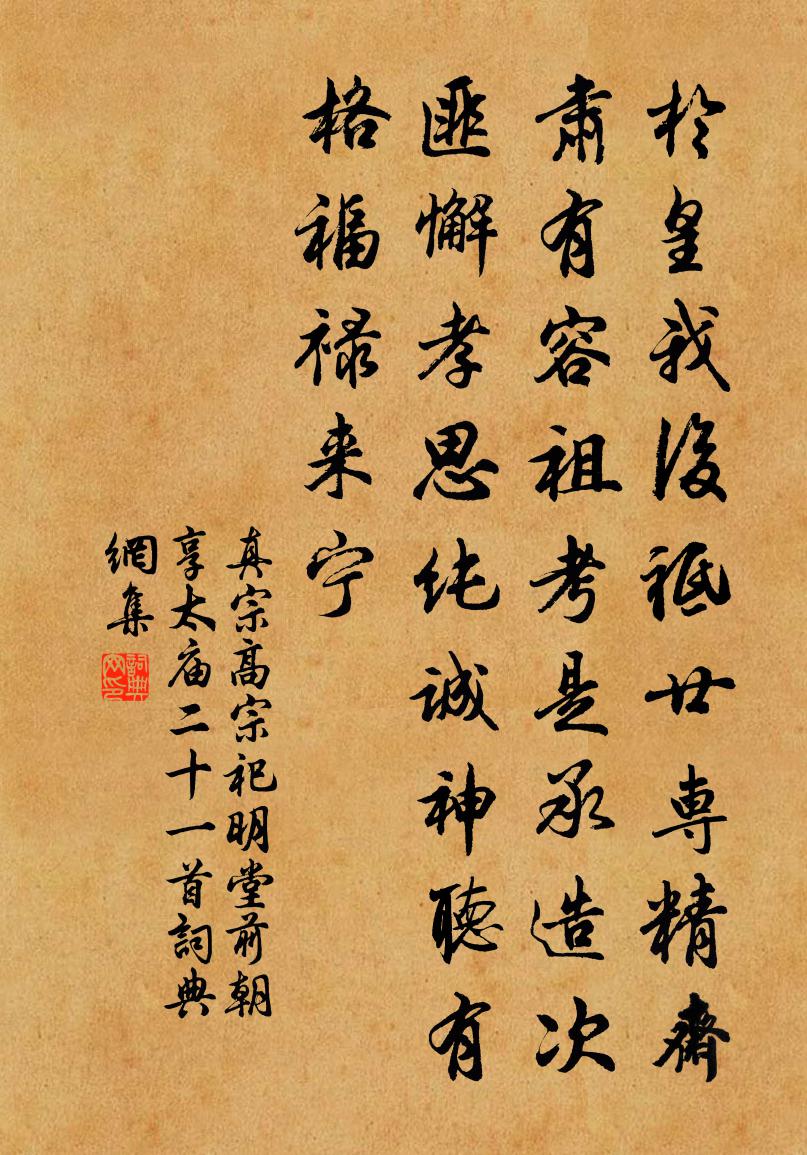 於皇我後祗廿専精齋
肅有容祖考是承造次
匪懈孝思纯誠神聴有
格福禄来宁
真宗高宗祀明堂前朝
享太庙二十一首詞典
網集
詞典
网印